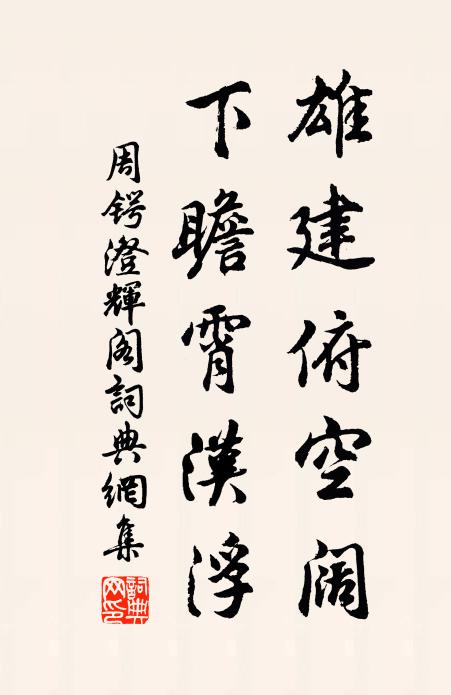 雄建俯空阔
下瞻霄漢浮
周锷澄輝阁詞典網集
詞典网印